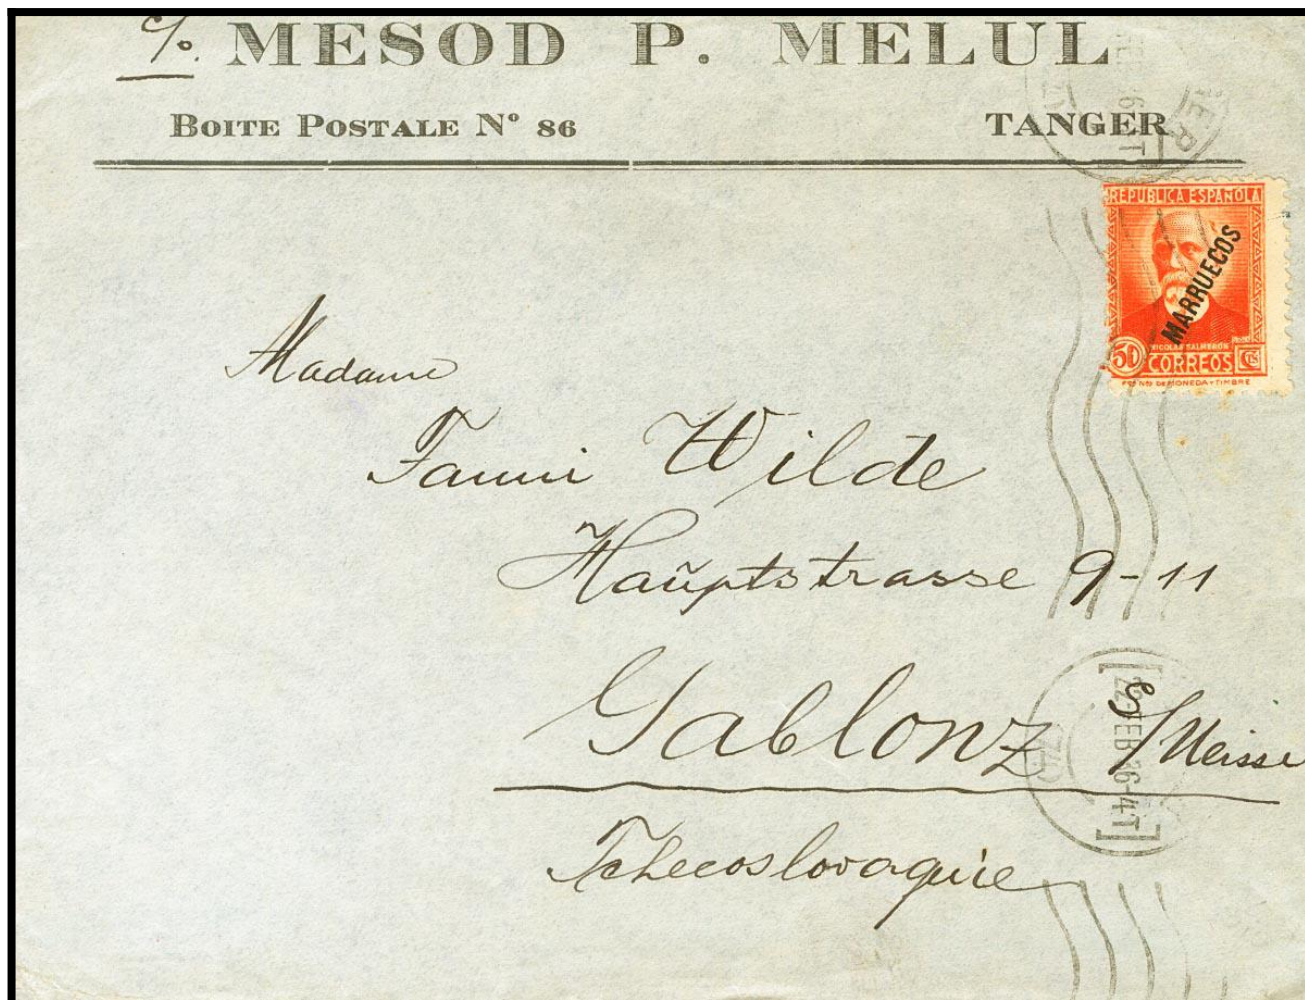 c/o. MESOD P. MELUL
BOITE POSTALE Nº 86 TANGER
REPUBLICA ESPAÑOLA
MARRUECOS
NICOLAS SALMERON
50 CORREOS CTS
Madame
Fanni Wilde
Hauptstrasse 9-11
Gablonz a/Neisse
[22-FEB 36-4T]
Tchecoslovaquie